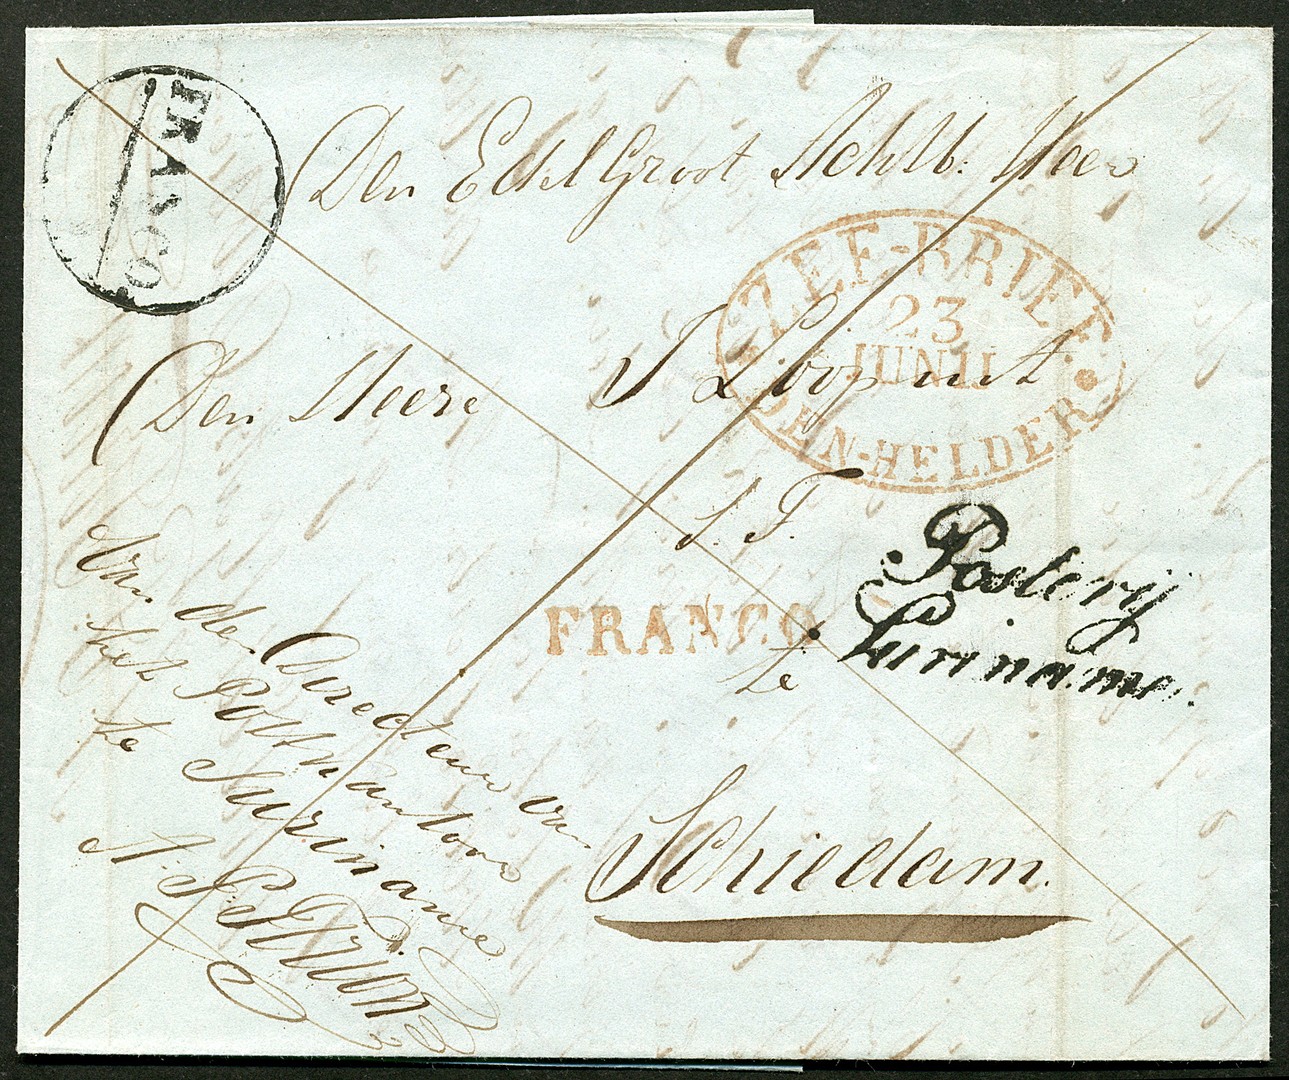 FRANCO
Den Edel Groot Achtb. Heer
ZEE-BRIEF
23
JUNIJ
DEN-HELDER
Den Heere J Loopuit
J. F.
Posterij
Suriname.
FRANCO
te
Schiedam.
Van de Directeur van
het Postkantoor
te Suriname